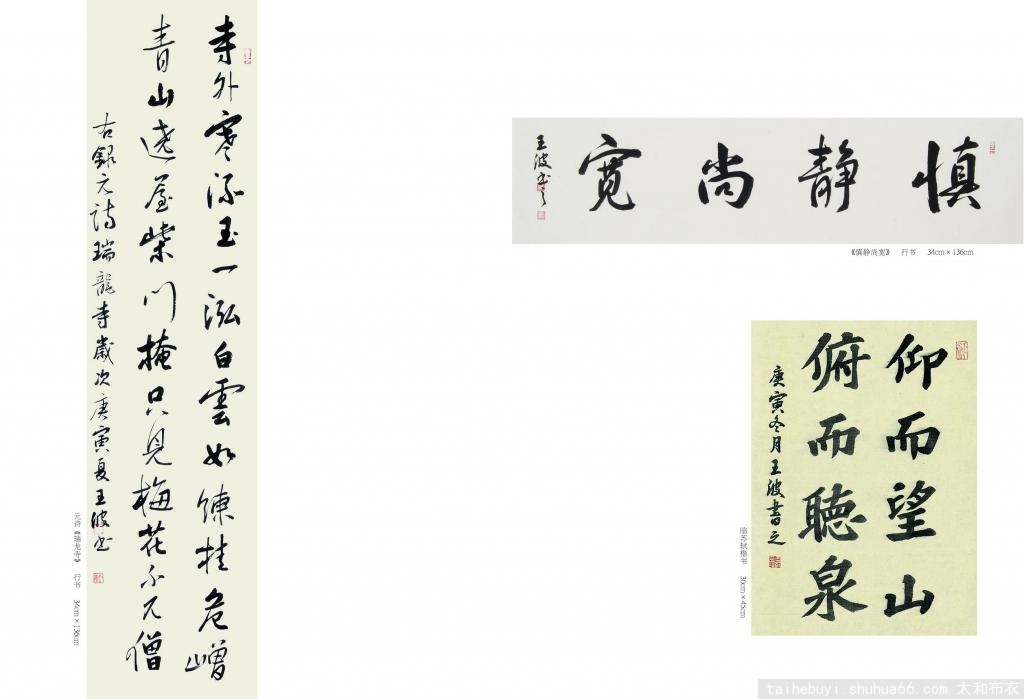 寺外寒流玉一泓白雲如練挂危嶒
青山遶屋柴門掩只見梅花不见僧
右錄元詩瑞龍寺歲次庚寅夏王波书
元诗《瑞龙寺》 行书 34cm×136cm
慎静尚宽
王波书之
《慎静尚宽》 行书 34cm×136cm
仰而望山
俯而聴泉
庚寅冬月王波書之
临苏轼楷书 30cm×45cm
taihebuyi.shuhua66.com 太和布衣